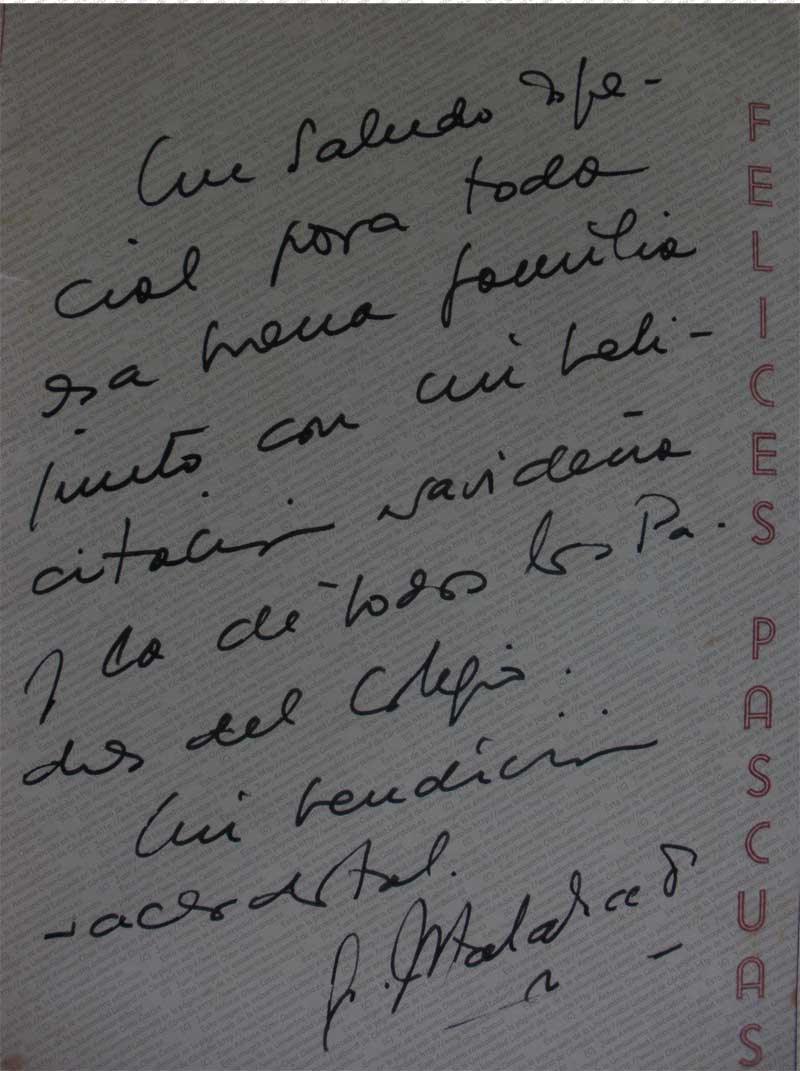 Un saludo espe-
cial para toda
esa buena familia
junto con mi feli-
citación navideña
y la de todos los Pa-
dres del Colegio.
Mi bendición
sacerdotal.
FELICES PASCUAS